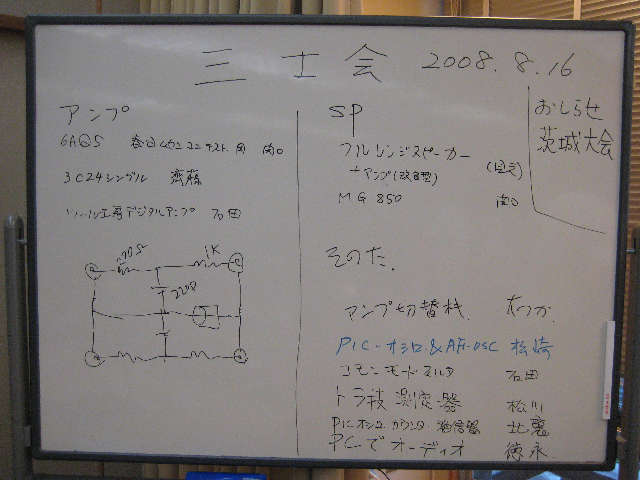 三士会 2008.8.16
おしらせ
茨城大会
アンプ
6AQ5 春日無線コンテスト用 向口
3C24シングル 齊藤
ツール工房デジタルアンプ 石田
1K
220Ω
SP
フルレンジスピーカー
+アンプ(改良型)
MG 850 向口
そのた.
アンプ切替機. 大つか
PIC-オシロ&AF-OSC 松崎
コモンモードフィルタ 石田
トラ技測定器 松川
PICオシロ カウンタ 発信器
PCでオーディオ 徳永